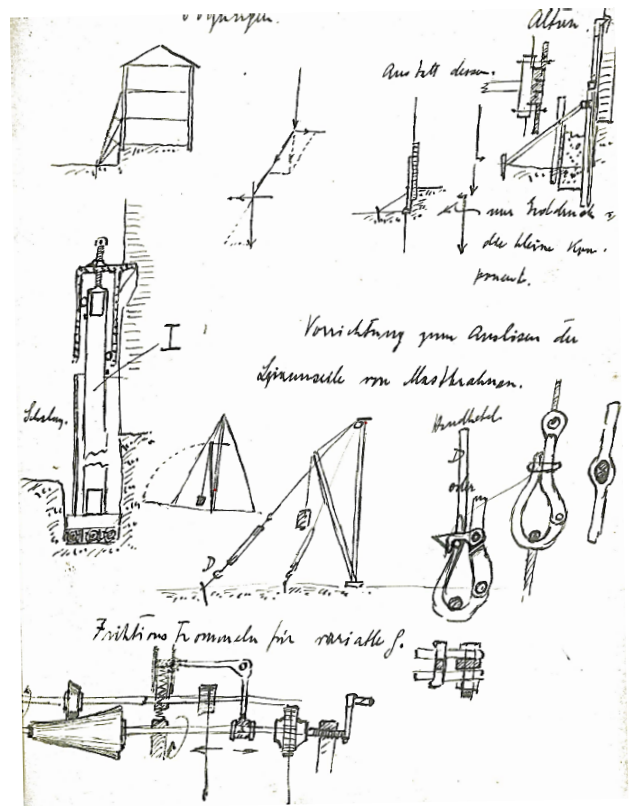 Anstatt dessen.
nur Erddruck
die kleine Kom-
ponent.
I
Vorrichtung zum Auslösen der
Spannseile von Mastkrahnen.
Schalung.
Handhebel
D
oder
D
Friktions Trommeln für variable G.